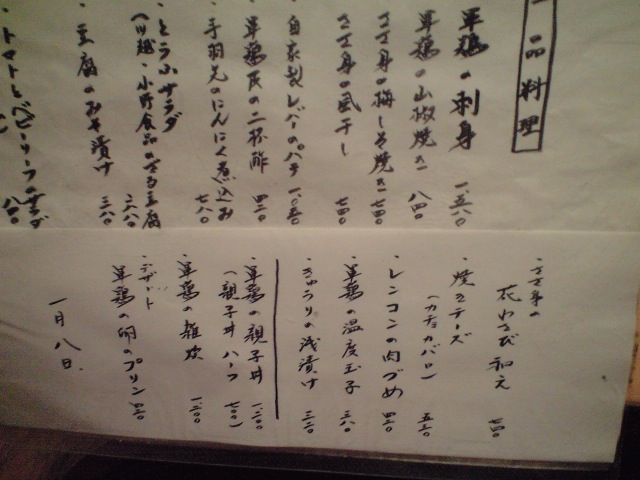 一品料理
軍鶏の刺身 一、五八〇
軍鶏の山椒焼き 八四〇
ささ身の梅しそ焼き 七四〇
ささ身の風干し 七四〇
・自家製レバーのパテ 一、〇五〇
・軍鶏皮の二杯酢 四二〇
・手羽先のにんにく煮込み 七八〇
・とうふサラダ
(川越・小野食品のざる豆腐 六八〇
・豆腐のみそ漬け 三八〇
・トマトとベビーリーフのサラダ 八四〇
・ささ身の
花わさび和え 七四〇
・焼きチーズ
(カチョカバロ) 五三〇
・レンコンの肉づめ 四二〇
・軍鶏の温度玉子 三八〇
・きゅうりの浅漬け 三二〇
・軍鶏の親子丼 一二〇〇
(親子丼 ハーフ 七〇〇)
・軍鶏の雑炊 一二〇〇
・デザート
軍鶏の卵のプリン 四二〇
一月八日.